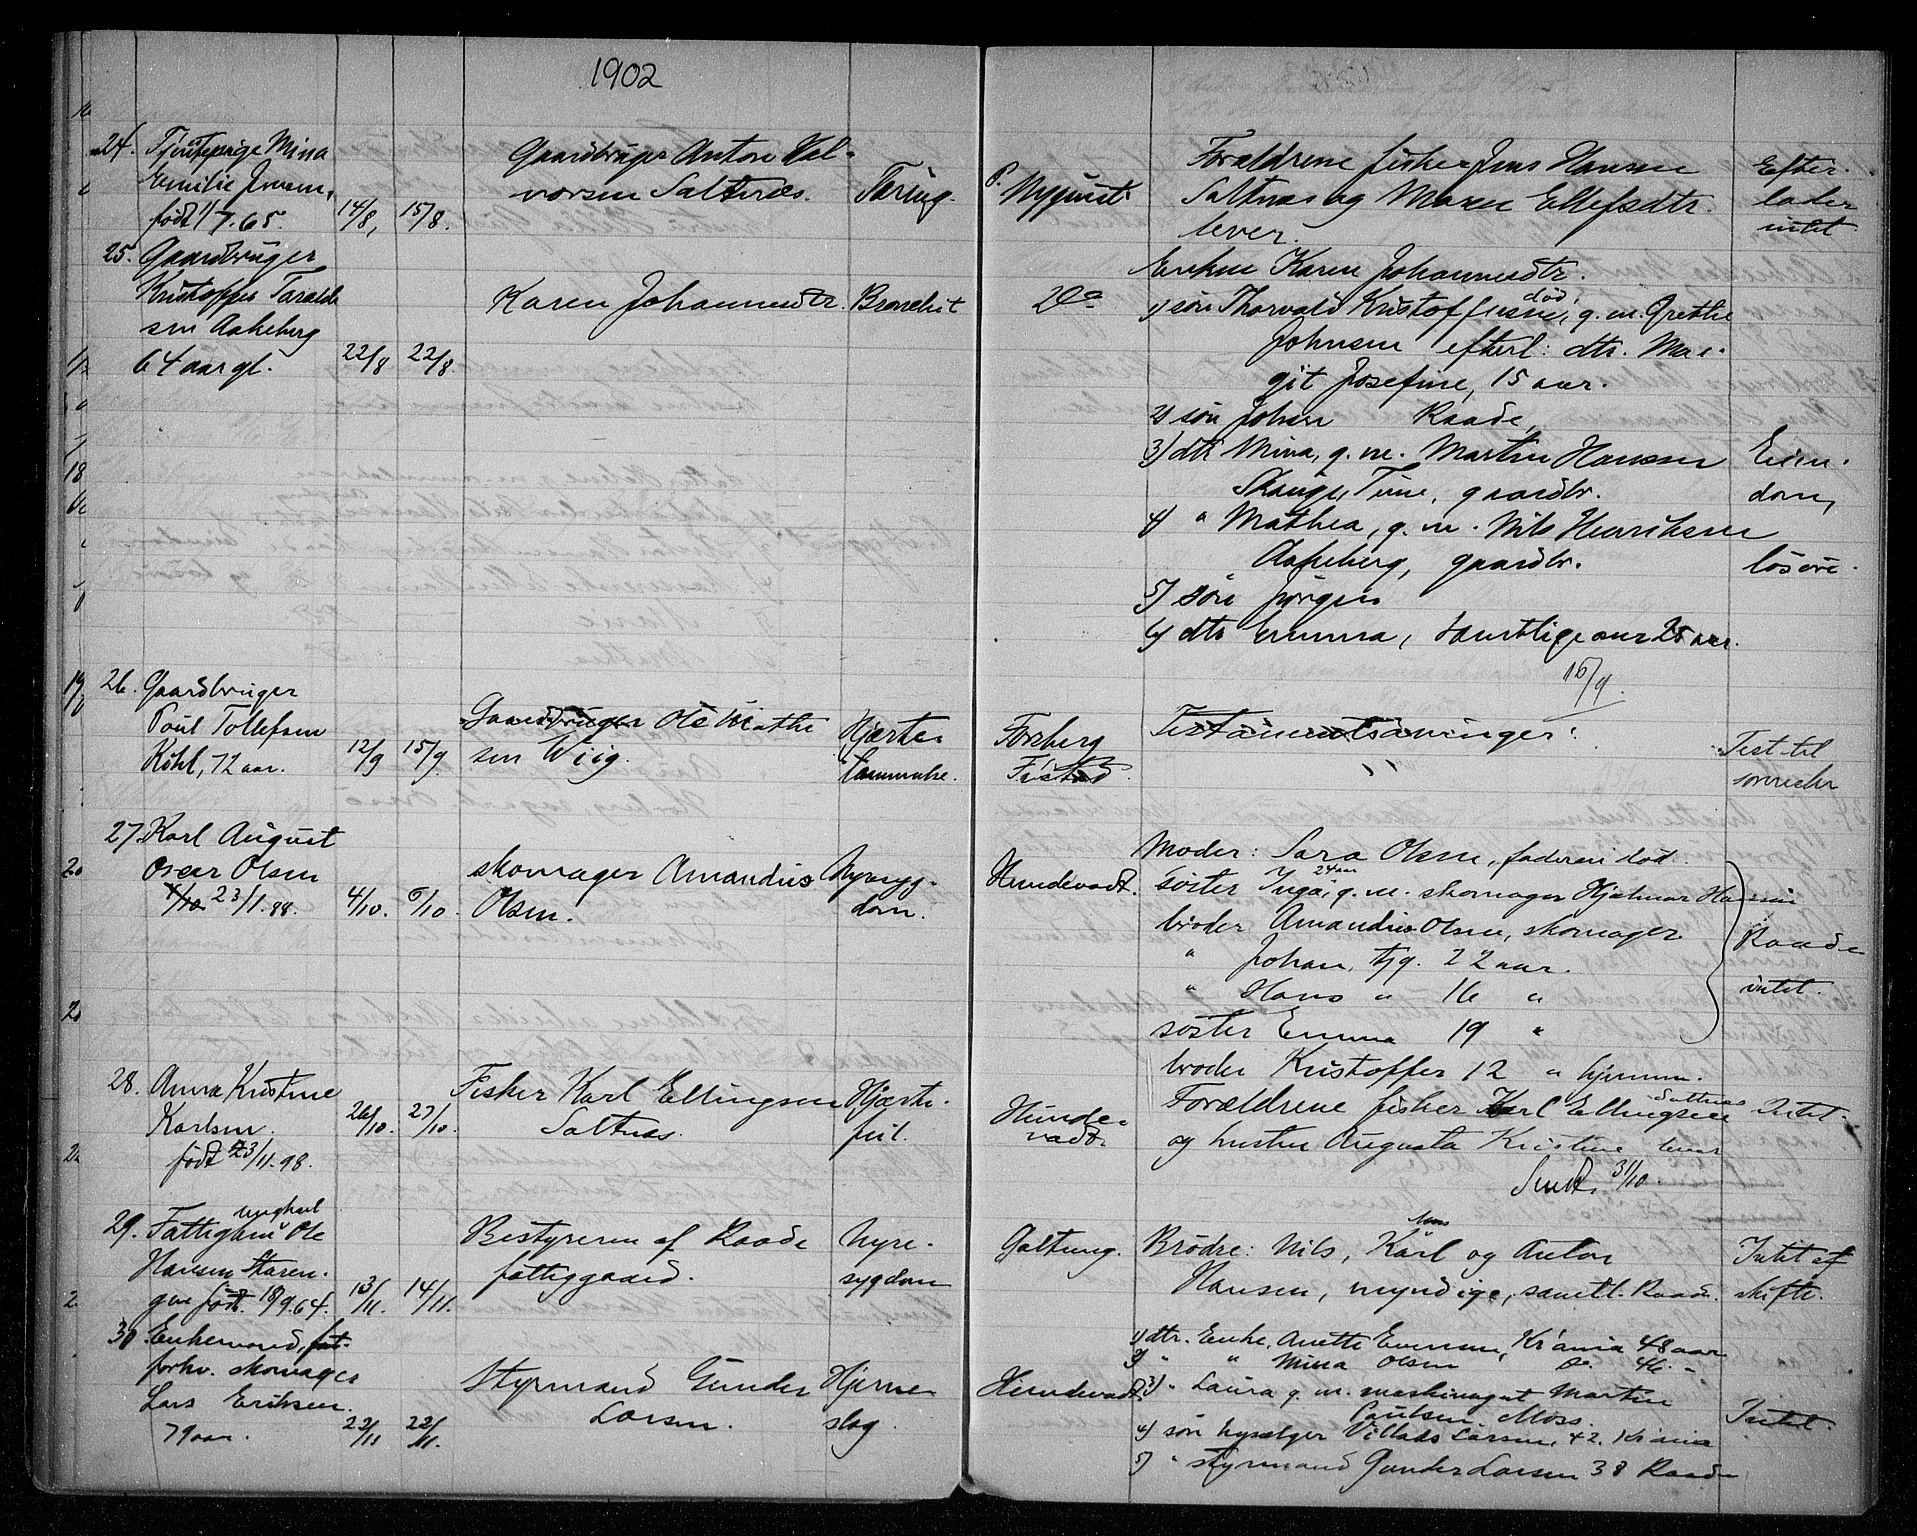 1902
24. Tjenstepige Mina
Emilie Jensen,
født 1/7.65. 14/8, 15/8.
Gaardbruger Anton Hal-
vorsen Saltnæs.
Tæring.
Nyquist
Forældrene fisker Jens Hansen
Saltnæs og Maren Ellefsdtr.
lever.
Efter-
lader
intet
25. Gaardbruger
Kristoffer Tarald-
sen Aakeberg
64 aar gl. 22/8 22/8.
Karen Johannesdtr.
Bronchit
Do
Enken Karen Johannesdtr.
1) søn Thorvald Kristoffersen, død, g. m. Grethe
Johnsen efterl: dtr. Mar-
git Josefine, 15 aar.
2) søn Johan Raade,
3) dtr Mina, g. m. Martin Hansen
Tune, gaardbr.
4) " Mathea, g. m. Nils Henriksen
Aakeberg, gaardbr.
5) søn Jørgen
6) dtr Emma, samtlige over 25 aar.
Eien-
dom,
løsøre.
26. Gaardbruger
Poul Tollefsen
Kihl, 72 aar. 12/9 15/9
Gaardbruger Ole Mathi
sen Wiig.
Hjerte-
lammelse.
Forsberg
16/9.
Testamentsarvinger:
Test til
27. Karl August
Oscar Olsen
4/10 23/1.88. 4/10. 6/10.
skomager Amandus
Olsen.
Nyresyg-
dom.
Hundevadt.
Moder: Sara Olsen, faderen død.
søster Inga, 24 aar g. m. skomager Hjalmar Hansen
broder Amandus Olsen, skomager
" Johan, tjg. 22 aar.
" Hans " 16 "
søster Emma 19 "
broder Kristoffer 12 " hjemme.
Raade
intet.
28. Anna Kristine
Karlsen.
født 23/11.98. 26/10. 27/10.
Fisker Karl Ellingsen
Saltnæs.
Hjerte-
feil.
Hunde-
vadt.
Forældrene fisker Karl Ellingsen Saltnæs
og hustru Augusta Kristine lever
Sendt. 31/10.
Intet.
29. Fattiglem ungkarl Ole
Hansen Haren-
gen født 18/9.64. 13/11. 14/11.
Bestyreren af Raade
fattiggaard.
Nyre-
sygdom
Galtung.
Brødre: Nils, Karl og Anton
Hansen, myndige, samtl. Raade.
Intet at
skifte.
30 Enkemand,
forhv. skomager
Lars Eriksen.
79 aar. 22/11 22/11.
Styrmand Gunder
Larsen.
Hjerne-
slag.
Hundevadt.
1) dtr. Enke, Anette Evensen, Kr.ania 48 aar
2) " " Mina Olsen Do. 46. "
3) " Laura g. m. maskinagent Martin
Paulsen, Moss.
4) søn hyrsælger Villads Larsen, 42. Kr.ania
5) " styrmand Gunder Larsen 38 Raade
Intet.